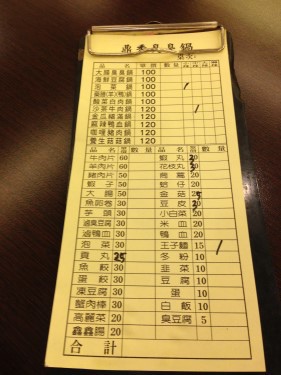 鼎香臭臭鍋
桌次:
品 名 單價 數量
大腸臭臭鍋 100
海鮮豆腐鍋 100
泡菜鍋 100
100
酸菜白肉鍋 100
沙茶牛肉鍋 120
金瓜豬滿鍋 120
麻辣鴨血鍋 120
咖哩豬肉鍋 120
養生菇菇鍋 120
品 名 單價 數量 品 名 單價 數量
牛肉片 60 蝦丸 20
羊肉片 60 花枝丸
豬肉片 50
蝦子 50 蛤仔 20
大腸 50 金菇 25
魚卵卷 30 豆皮 20
芋頭 30 小白菜 20
滷臭豆腐 30 米血 20
滷鴨血 30 鴨血 20
泡菜 30 王子麵 15
貢丸 25 冬粉 10
魚餃 30 韭菜 10
蛋餃 30 豆腐 10
凍豆腐 30 蛋 10
蟹肉棒 30 白飯 10
高麗菜 20 臭豆腐 5
鑫鑫腸 20
合計